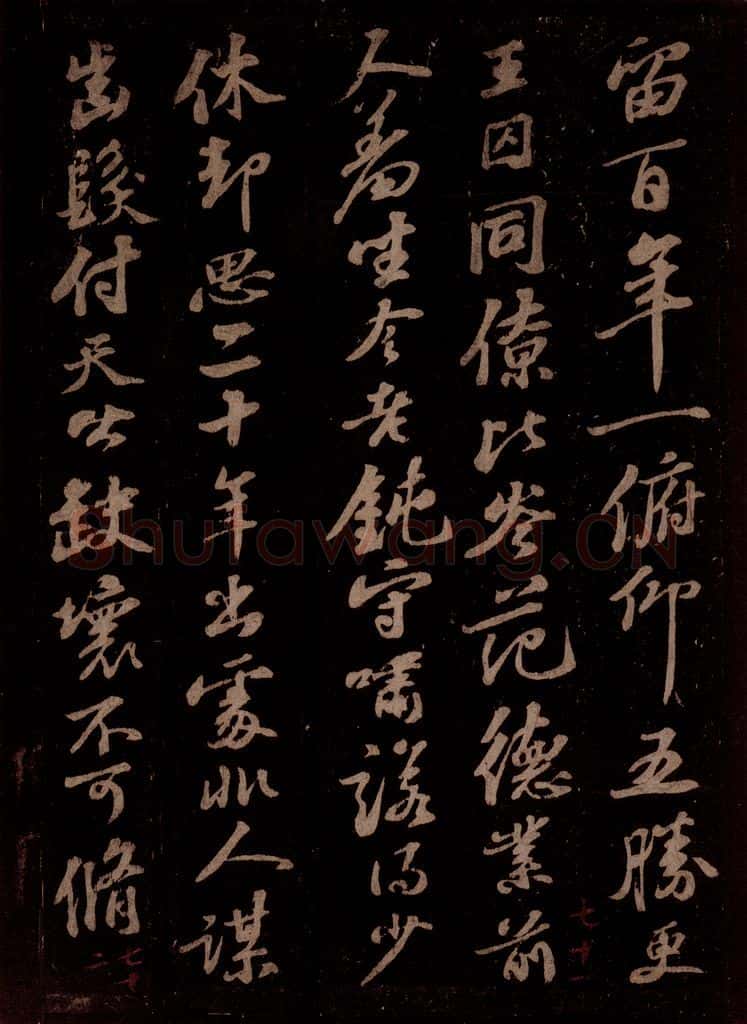 留百年一俯仰五勝更
王囚同僚比岑范德業前
人羞坐令老鈍守嘯諾得少
休却思二十年出處非人謀
齒髮付天公缺壞不可脩
七十一
七十二
shufawang.CN